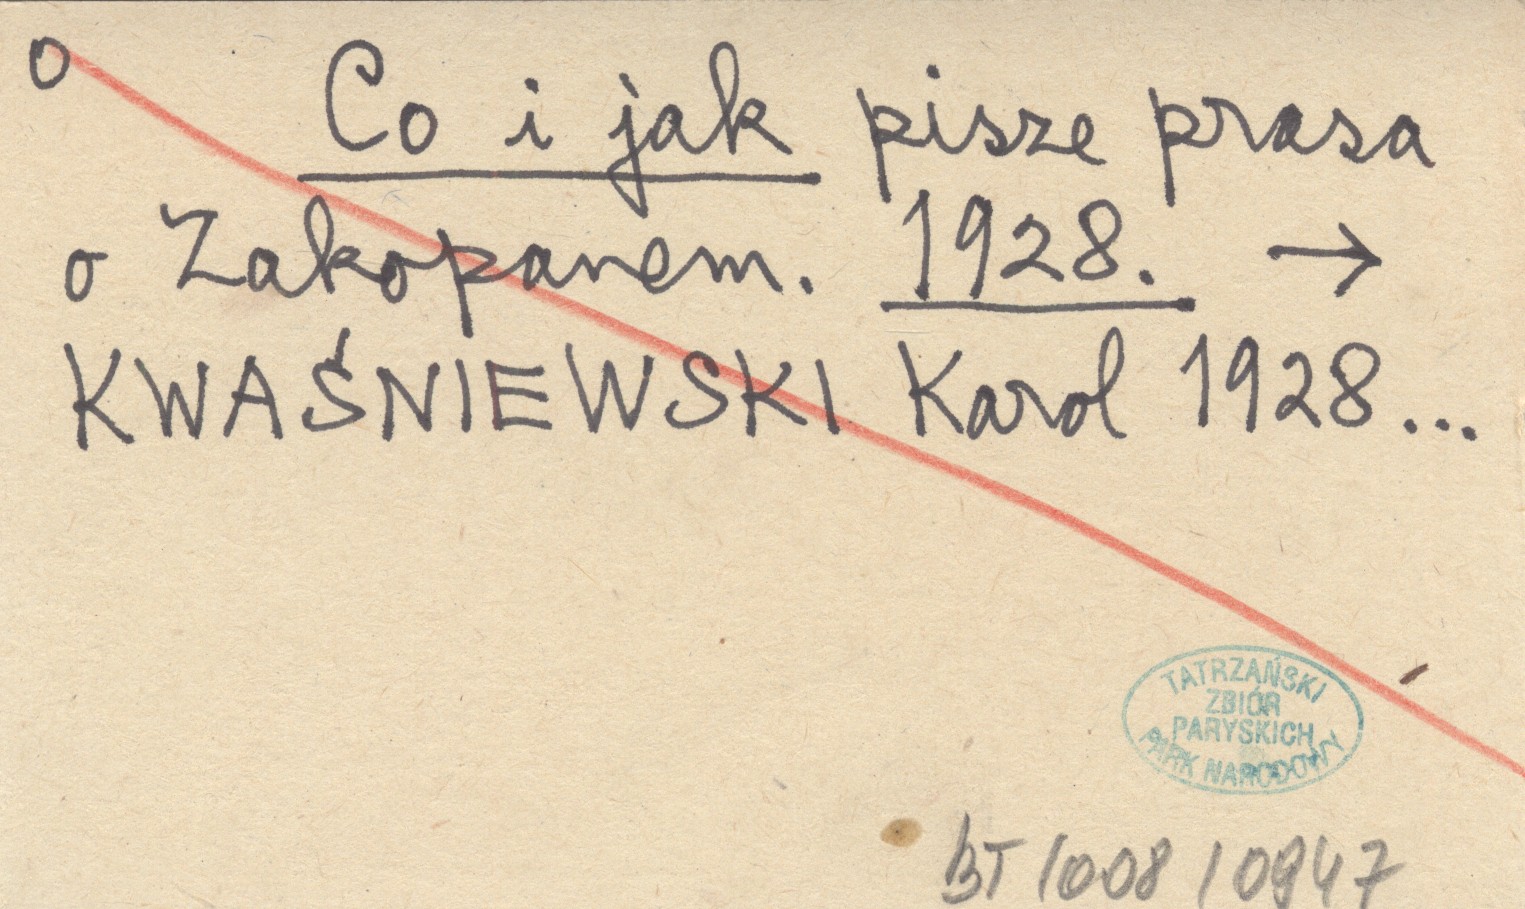 o Co i jak pisze prasa
o Zakopanem. 1928. →
KWAŚNIEWSKI Karol 1928...
TATRZAŃSKI
ZBIÓR
PARYSKICH
PARK NARODOWY
BT 1008 / 0947